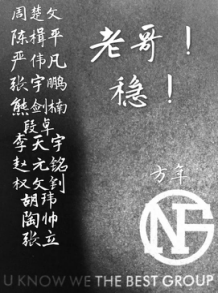 周楚文
陈楫平
严伟凡
张宇鹏
熊剑楠
段卓
李天宇
赵元铭
权文到
胡玮
陶帅
张立
老哥！
稳！
方年
NG
U KNOW WE THE BEST GROUP